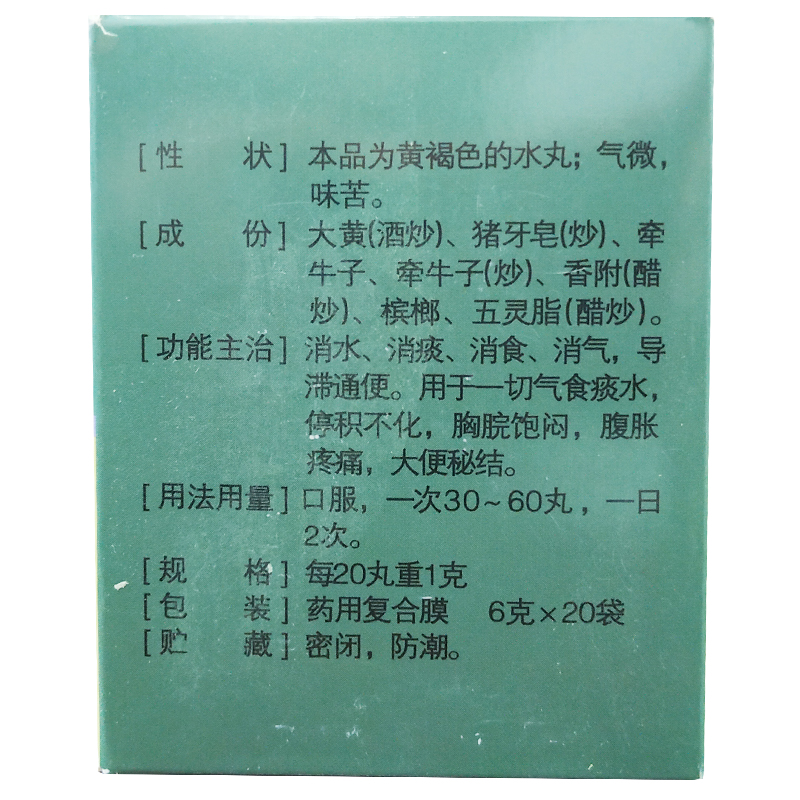 [性 状] 本品为黄褐色的水丸；气微，
味苦。
[成 份] 大黄(酒炒)、猪牙皂(炒)、牵
牛子、牵牛子(炒)、香附(醋
炒)、槟榔、五灵脂(醋炒)。
[功能主治] 消水、消痰、消食、消气，导
滞通便。用于一切气食痰水，
停积不化，胸脘饱闷，腹胀
疼痛，大便秘结。
[用法用量] 口服，一次30~60丸，一日
2次。
[规 格] 每20丸重1克
[包 装] 药用复合膜 6克×20袋
[贮 藏] 密闭，防潮。